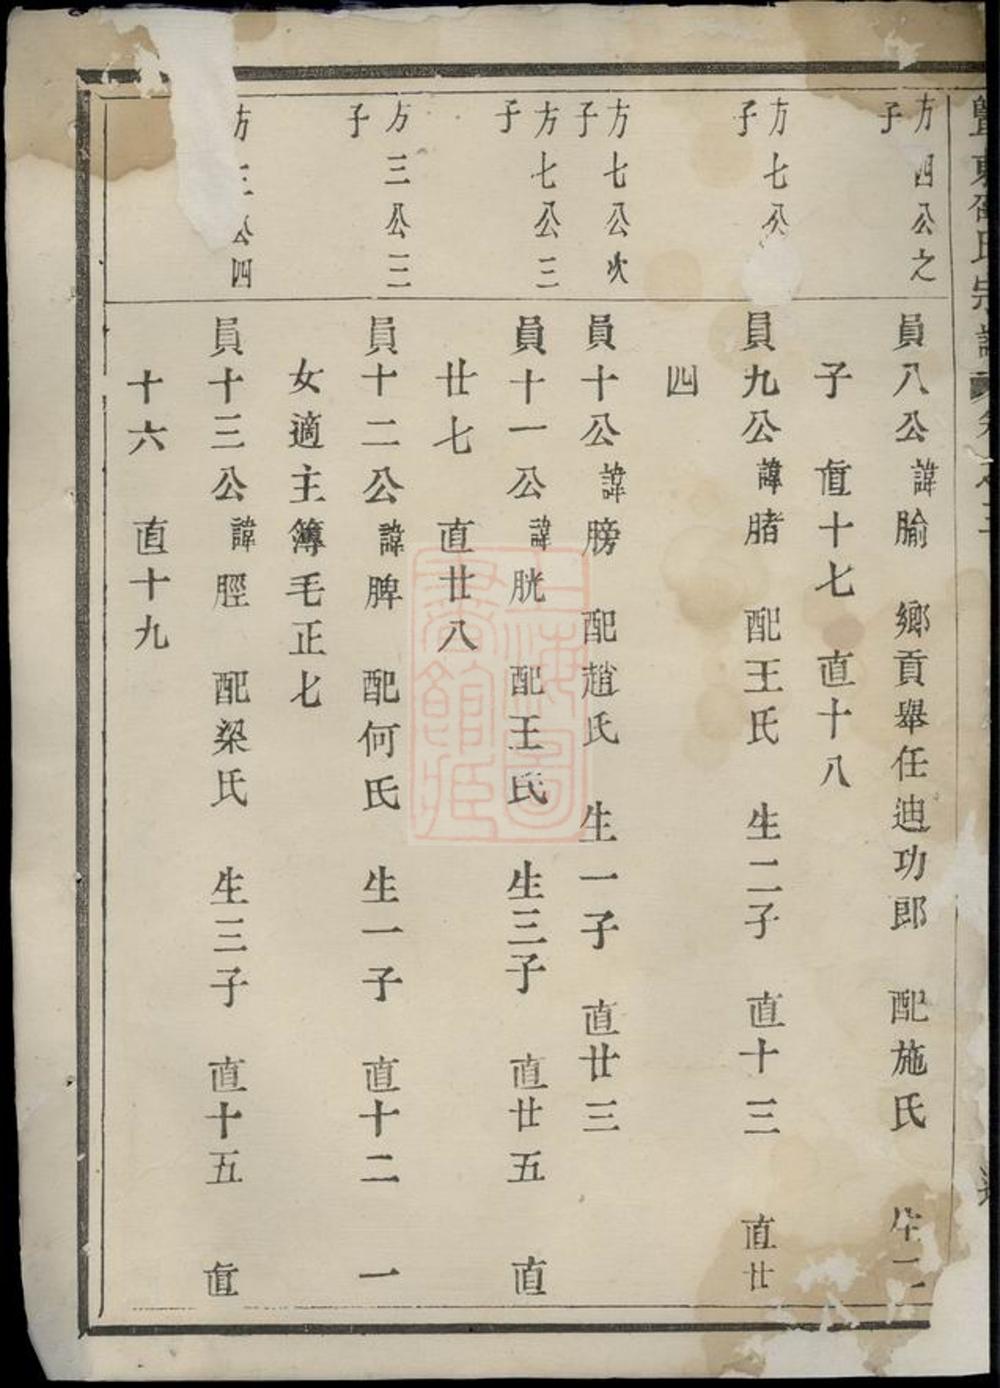 方四公之
子
員八公諱腧 鄉貢舉任迪功郎 配施氏 生二
子 直十七 直十八
方七公
子
員九公諱腤 配王氏 生二子 直十三 直廿
四
方七公次
子
員十公諱膀 配趙氏 生一子 直廿三
方七公三
子
員十一公諱胱 配王氏 生三子 直廿五 直
廿七 直廿八
方三公三
子
員十二公諱脾 配何氏 生一子 直十二 一
女適主簿毛正七
方三公四
員十三公諱脛 配梁氏 生三子 直十五 直
十六 直十九
上海圖書館藏